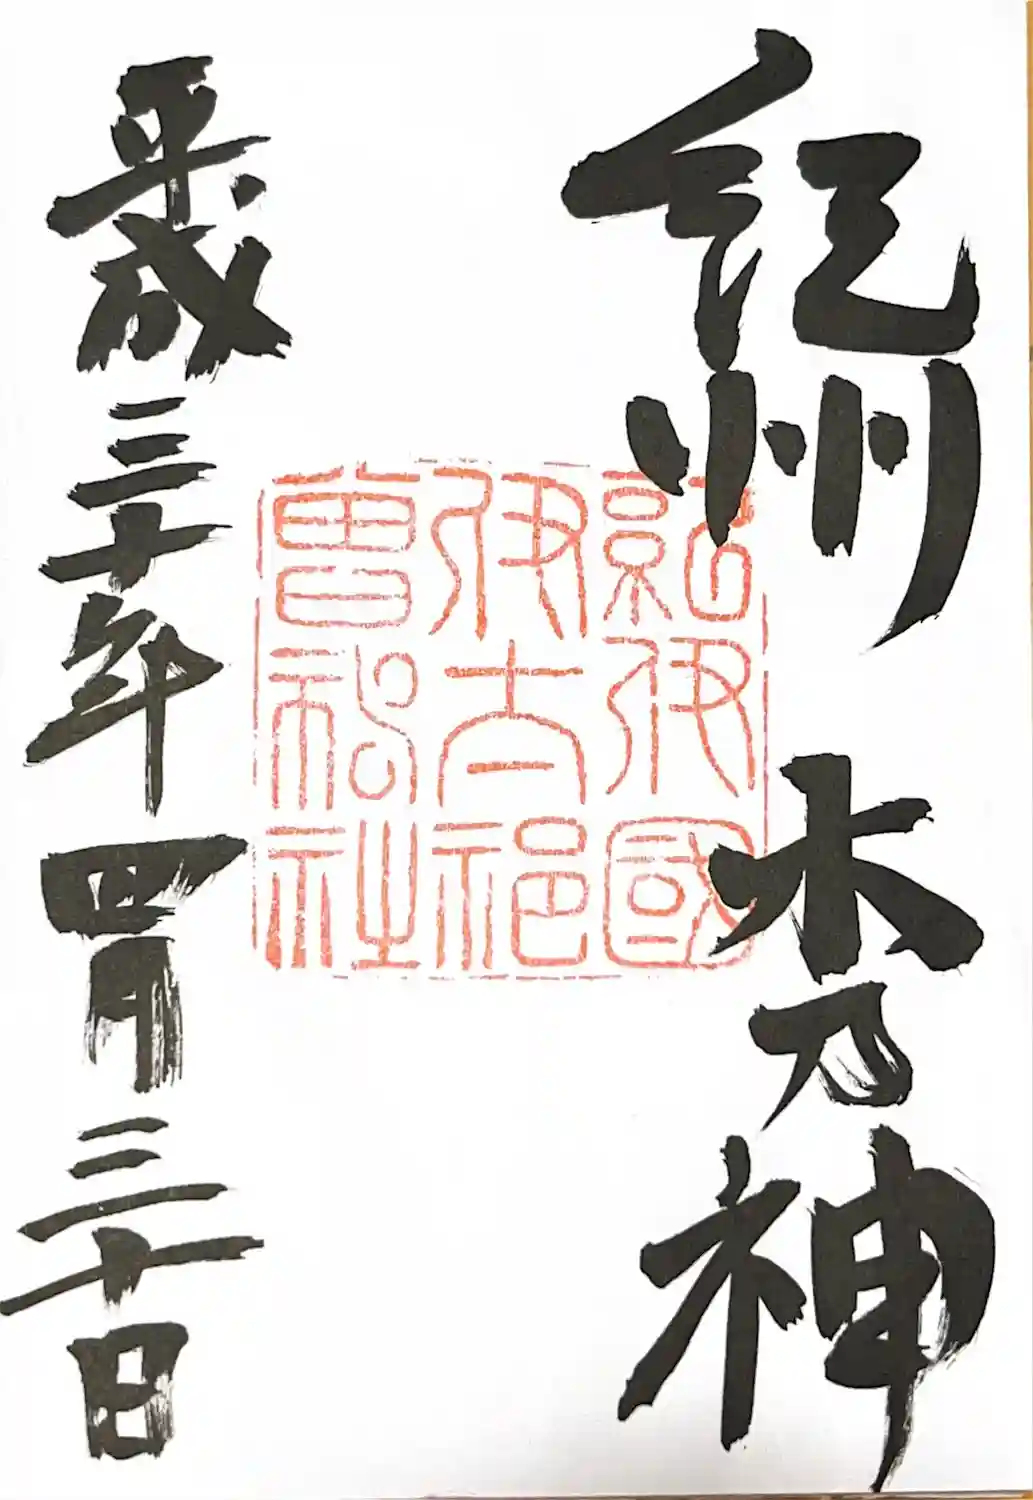 紀州 木乃神
紀伊國
伊太祁
曾神社
平成三十年四月三十日